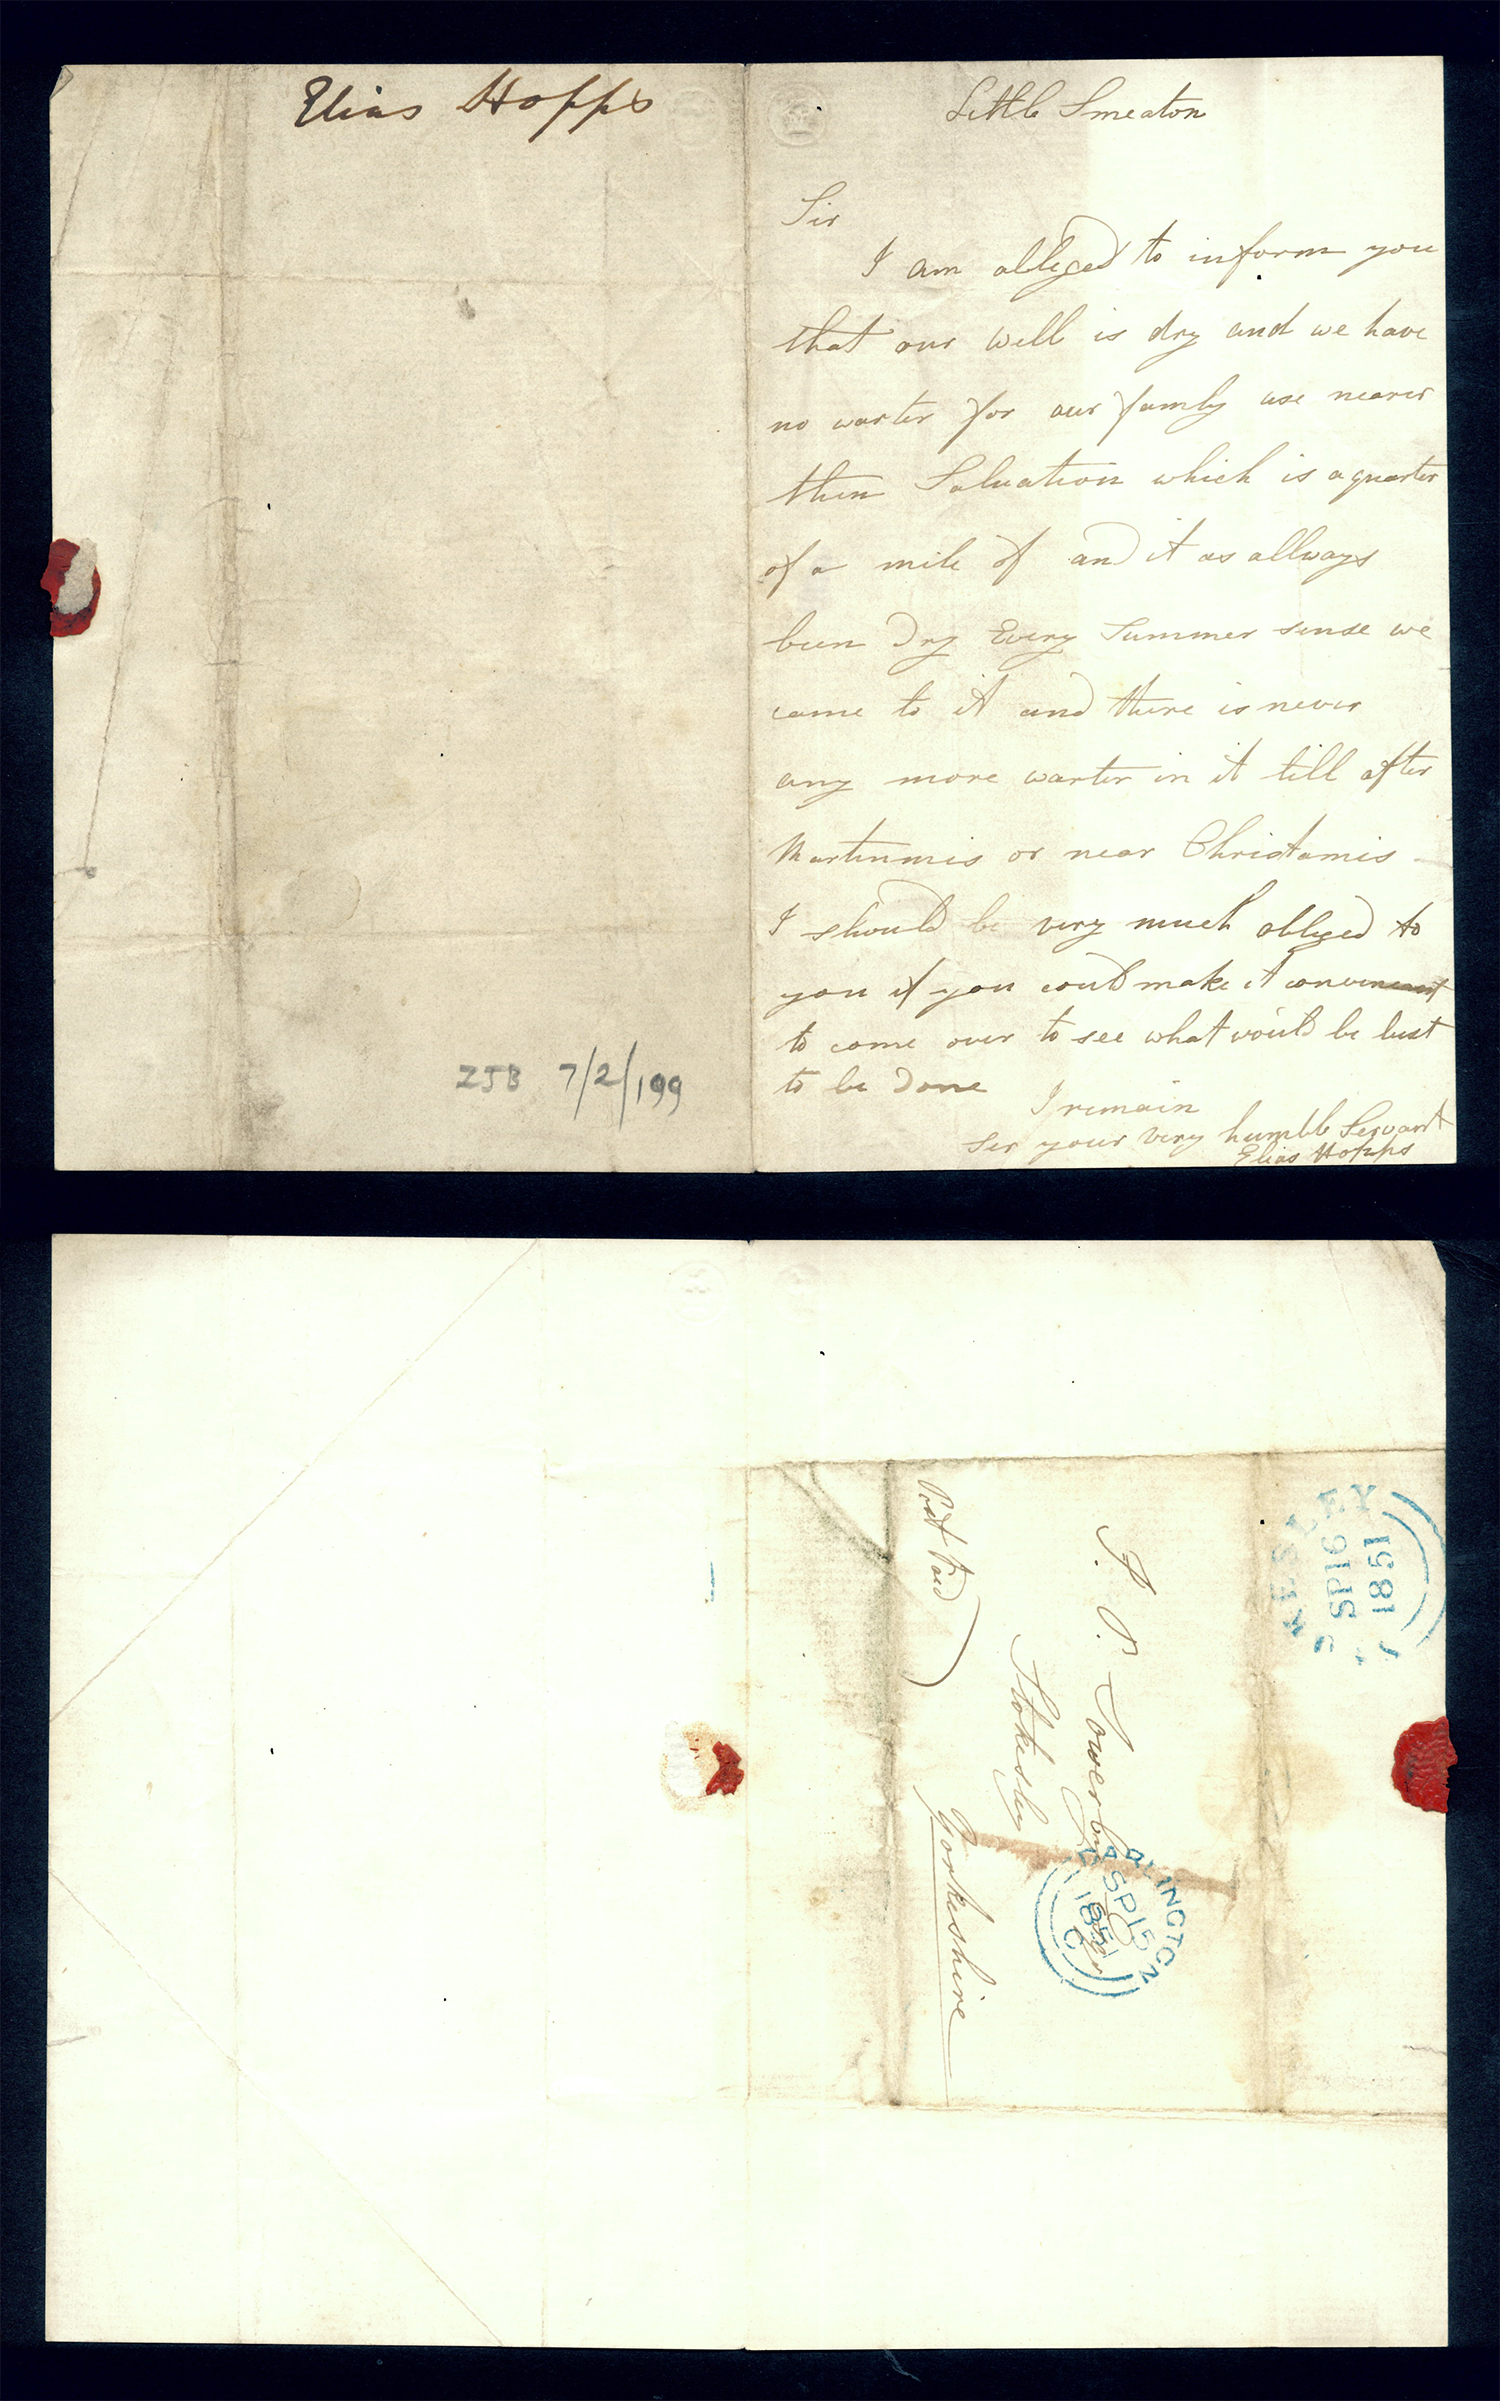 Elias Hopps
ZJB 7/2/199
Little Smeaton
Sir
I am obleged to inform you
that our well is dry and we have
no warter for our famly use nearer
then Saluation which is a quarter
of a mile of and it as allways
been Dry Every Summer sense we
came to it and there is never
any more warter in it till after
Martinmis or near Christamis
I should be very much obliged to
you if you could make it convineant
to come over to see what would be best
to be Done
I remain
Ser your very humble Servant
Elias Hopps
STOKESLEY
SP 16
1851
T. P. Sowerby
Stokesly
Yorkeshire
Post Paid
DARLINGTON
SP 15
1851
C